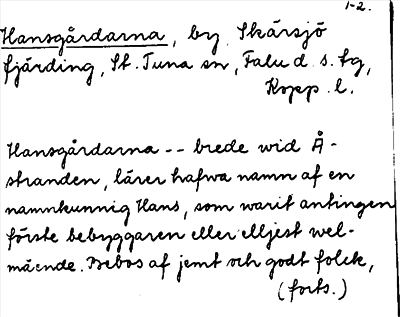 1-2.
Hansgårdarna, by, Skärsjö
fjärding, St. Tuna sn, Falu d. s. tg,
Kopp. l.
Hansgårdarna -- brede wid Å-
stranden, lärer hafwa namn af en
namnkunnig Hans, som warit antingen
förste bebyggaren eller eljest wel-
mående. Bebos af jemt och godt folck,
(forts.)